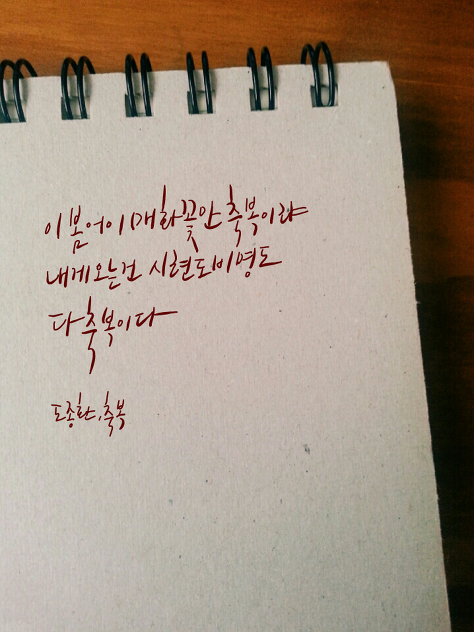 이 봄 어이 매화꽃만 축복이랴
내게 오는 건 시련도 비명도
다 축복이다
도종환, 축복